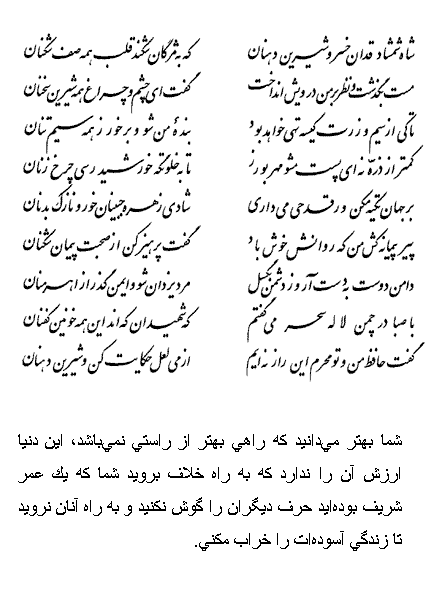 شاه شمشاد قدان خسرو شیرین دهنان که به مژگان شکند قلب همه صف شکنان
مست بگذشت و نظر بر من درویش انداخت گفت ای چشم و چراغ همه شیرین سخنان
تا کی از سیم و زرت کیسه تهی خواهد بود بندهٔ من شو و برخور ز همه سیم تنان
کمتر از ذرّه نه ای پست مشو مهر بورز تا به خلوتگه خورشید رسی چرخ زنان
بر جهان تکیه مکن ور قدحی می داری شادی زهره جبینان خور و نازک بدنان
پیر پیمانه کش من که روانش خوش باد گفت پرهیز کن از صحبت پیمان شکنان
دامن دوست بدست آر و ز دشمن بگسل مرد یزدان شو و ایمن گذر از اهرمنان
با صبا در چمن لاله سحر می گفتم که شهیدان که اند این همه خونین کفنان
گفت حافظ من و تو محرم این راز نه ایم از می لعل حکایت کن و شیرین دهنان
شما بهتر مي‌دانيد كه راهي بهتر از راستي نمي‌باشد، اين دنيا
ارزش آن را ندارد كه به راه خلاف برويد شما كه يك عمر
شريف بوده‌ايد حرف ديگران را گوش نكنيد و به راه آنان نرويد
تا زندگي آسوده‌ات را خراب مكني.